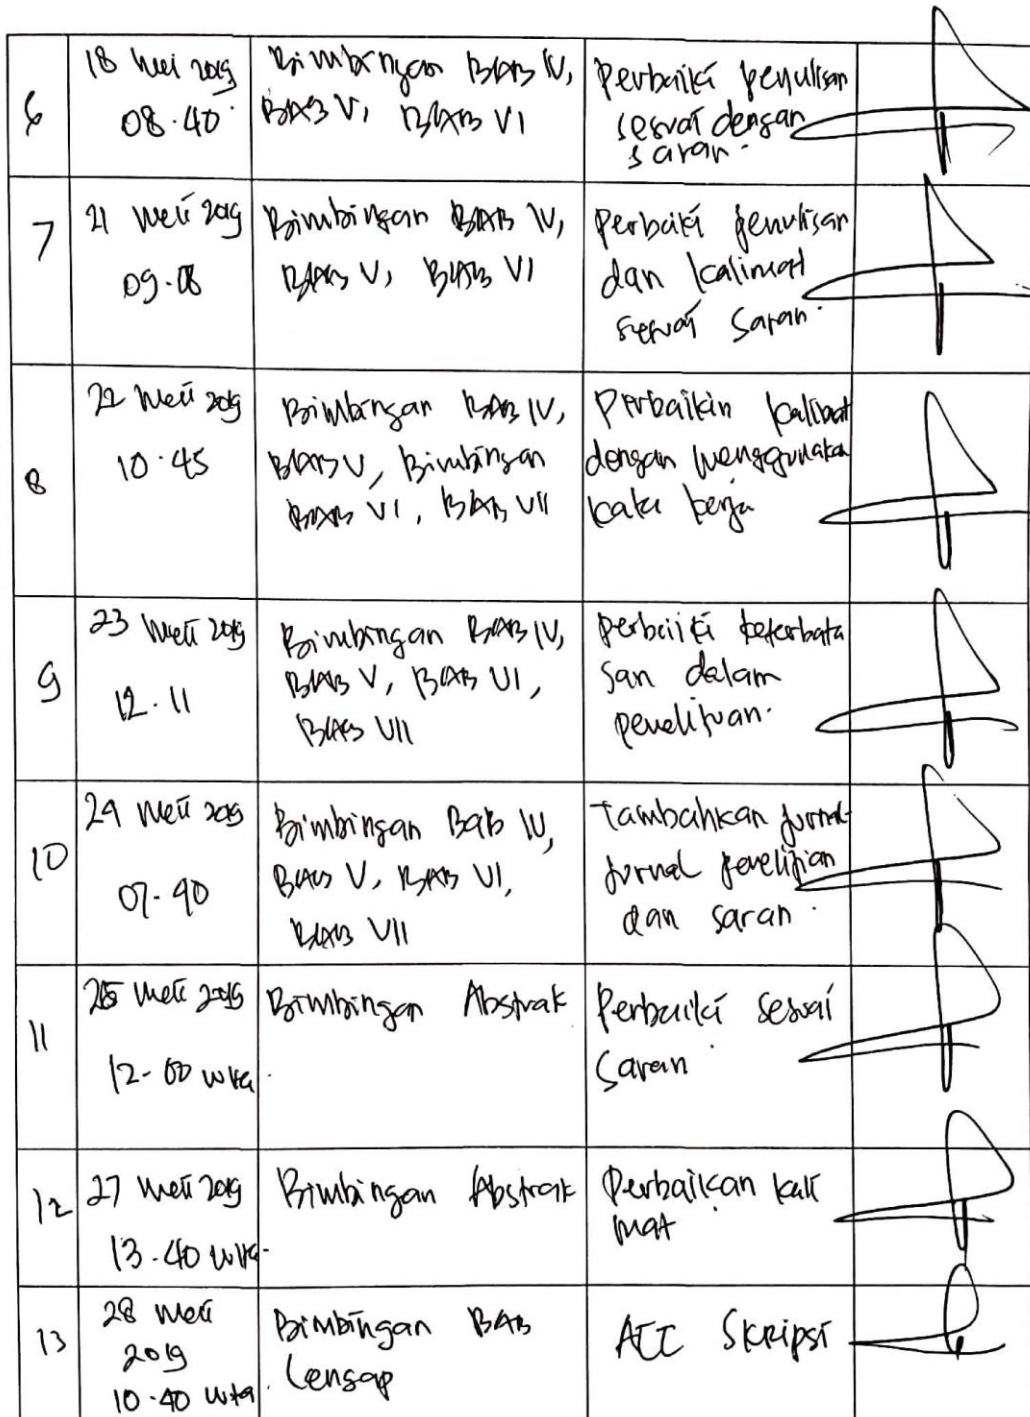 6
18 Mei 2019
08.40
Bimbingan BAB IV,
BAB V, BAB VI
Perbaiki penulisan
sesuai dengan
saran.
7
21 Mei 2019
09.08
Bimbingan BAB IV,
BAB V, BAB VI
Perbaiki penulisan
dan kalimat
sesuai saran.
8
22 Mei 2019
10.45
Bimbingan BAB IV,
BAB V, Bimbingan
BAB VI, BAB VII
Perbaikin kalimat
dengan menggunakan
kata kerja
9
23 Mei 2019
12.11
Bimbingan BAB IV,
BAB V, BAB VI,
BAB VII
perbaiki keterbata
san dalam
penelitian.
10
24 Mei 2019
07.40
Bimbingan Bab IV,
BAB V, BAB VI,
BAB VII
Tambahkan jurnal-
jurnal penelitian
dan saran.
11
25 Mei 2019
12-00 wita
Bimbingan Abstrak
Perbaiki sesuai
saran
12
27 Mei 2019
13.40 wita
Bimbingan Abstrak
Perbaikan kali
mat
13
28 Mei
2019
10.40 wita
Bimbingan BAB
Lengkap
ACC Skripsi